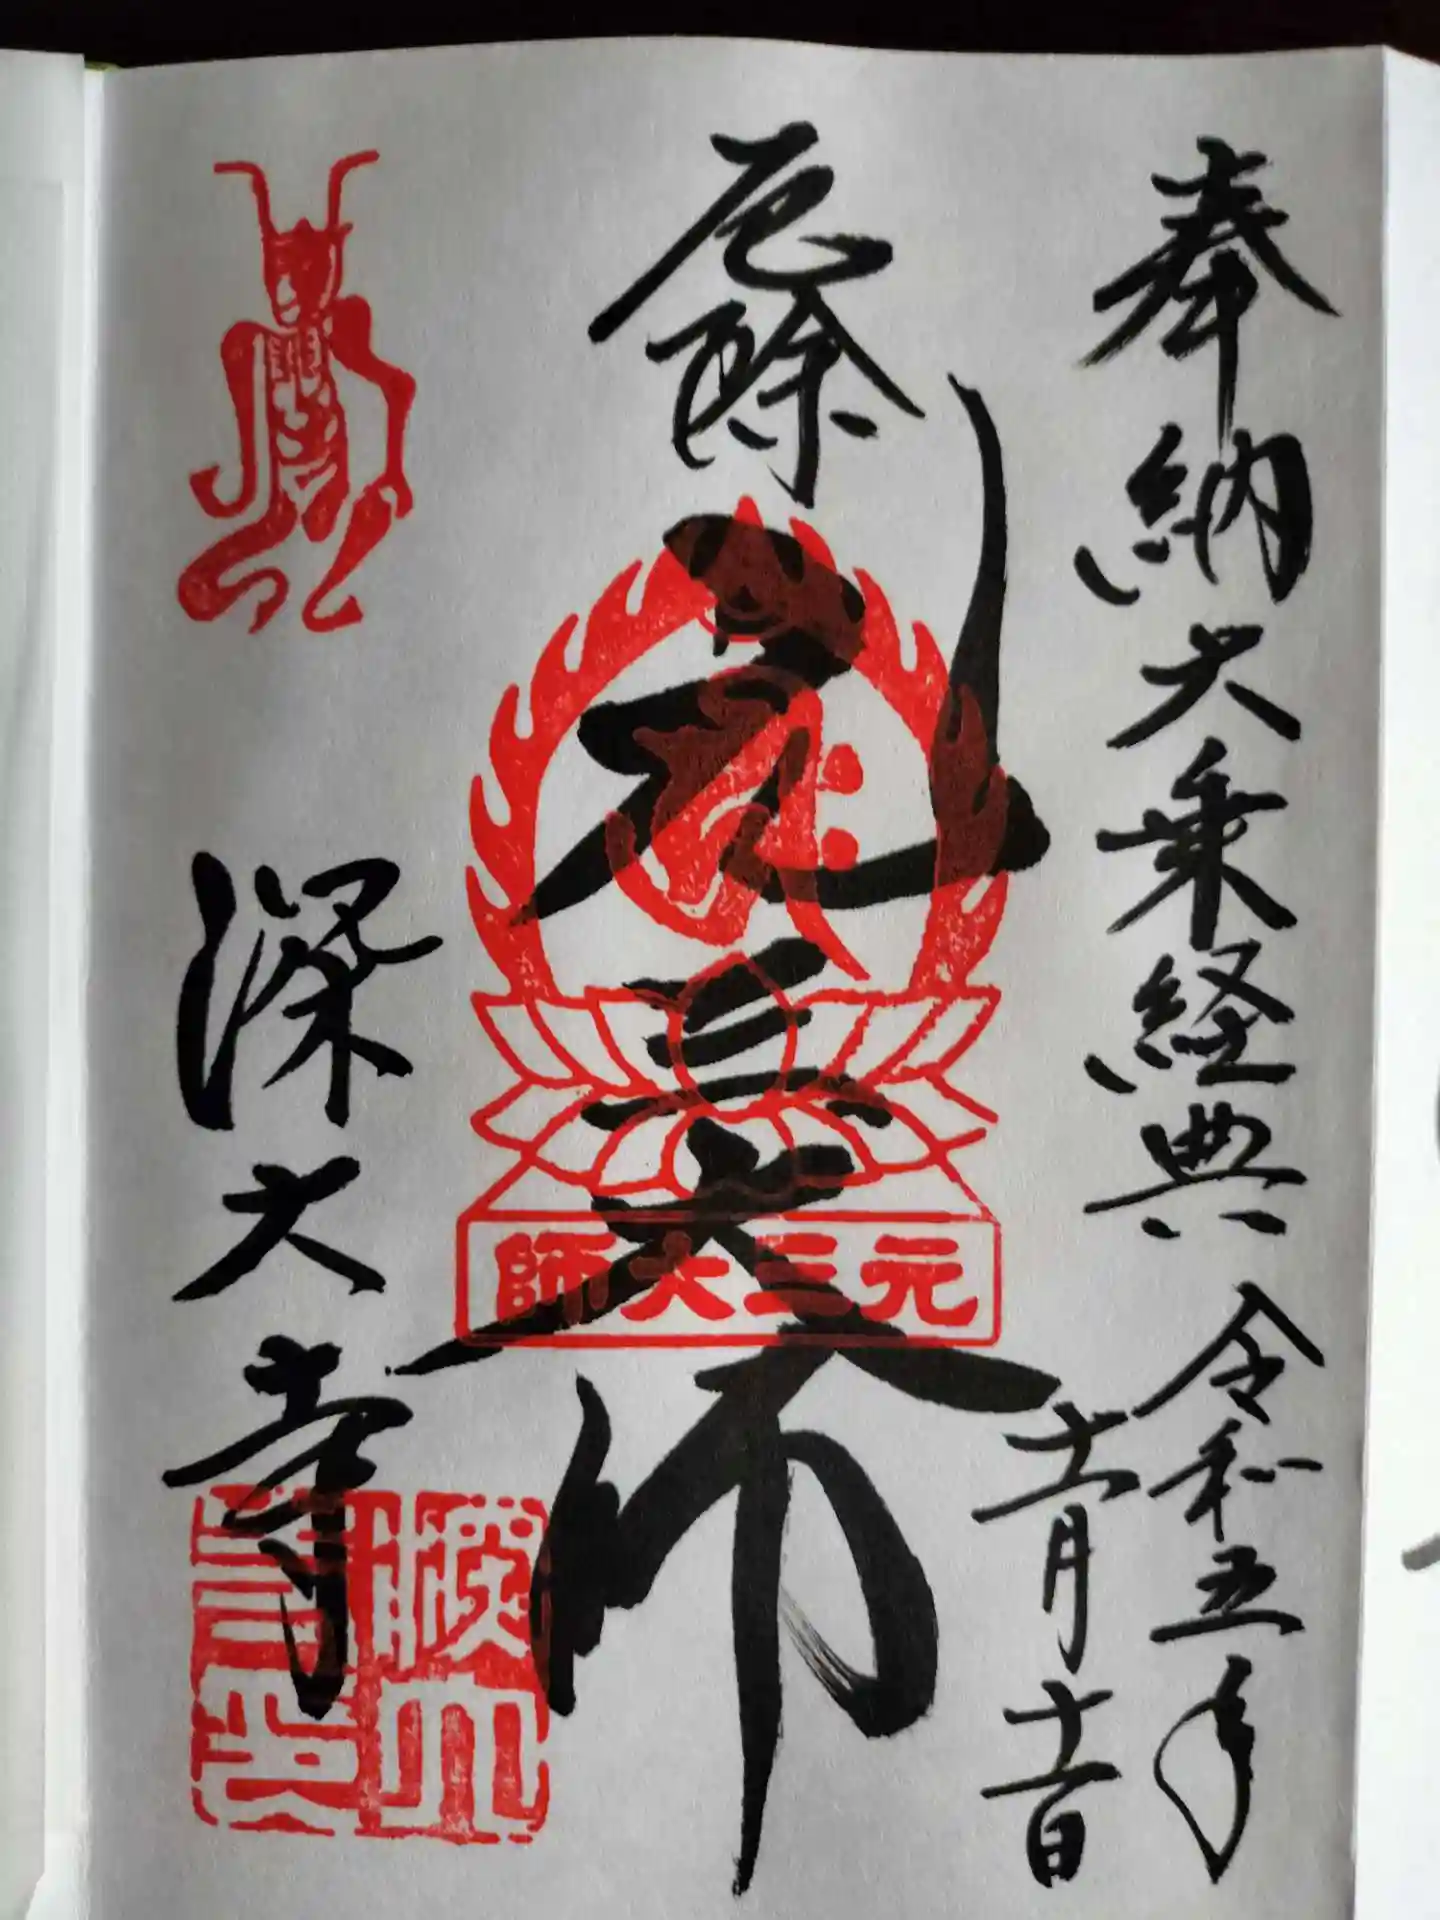 奉納大乗経典
令和五年
十一月十二日
厄除
元三大師
師大三元
深大寺
深大寺印